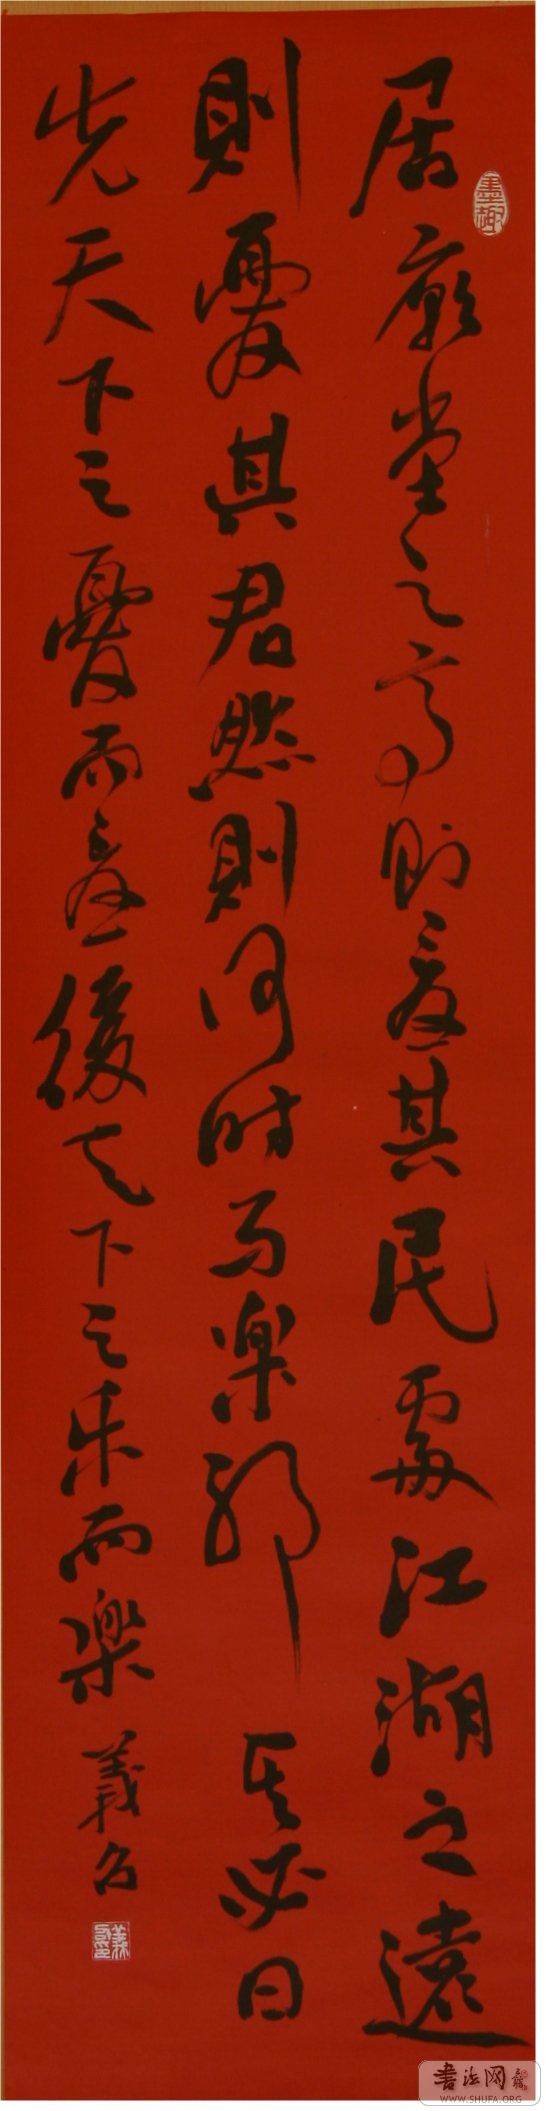 居廟堂之高則憂其民處江湖之遠
則憂其君然則何时而樂耶其必曰
先天下之憂而憂後天下之乐而樂
義名
墨趣
書法网
WWW.SHUFA.ORG